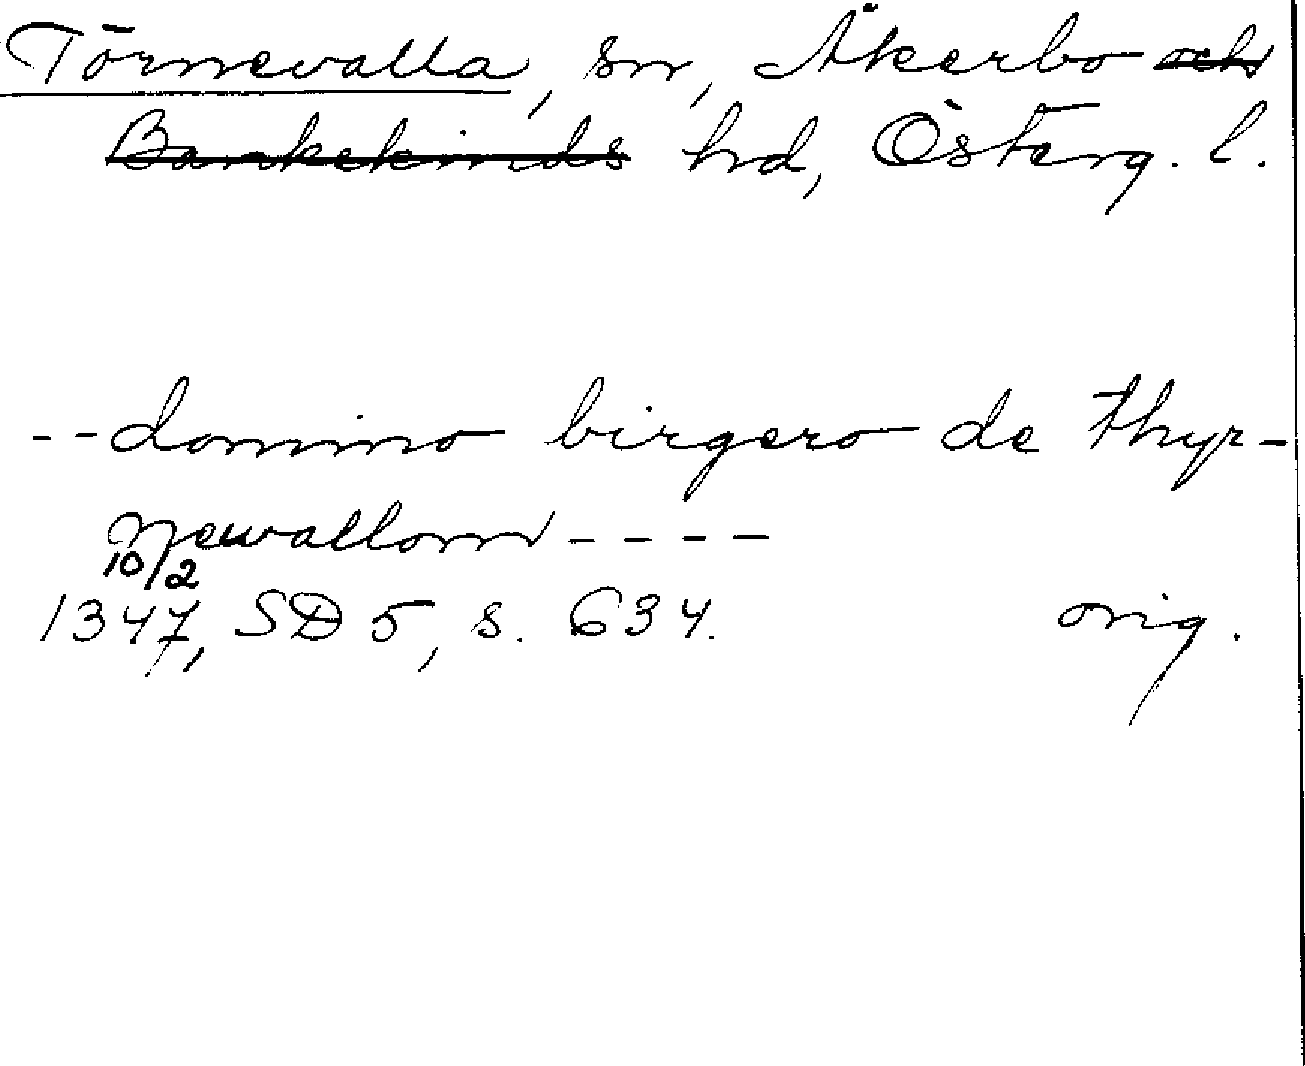 Törnevalla, sn, Åkerbo och
Bankekinds hrd, Österg. l.
--domino birgero de thyr-
newallom ----
10/2
1347, SD 5, s. 634. orig.